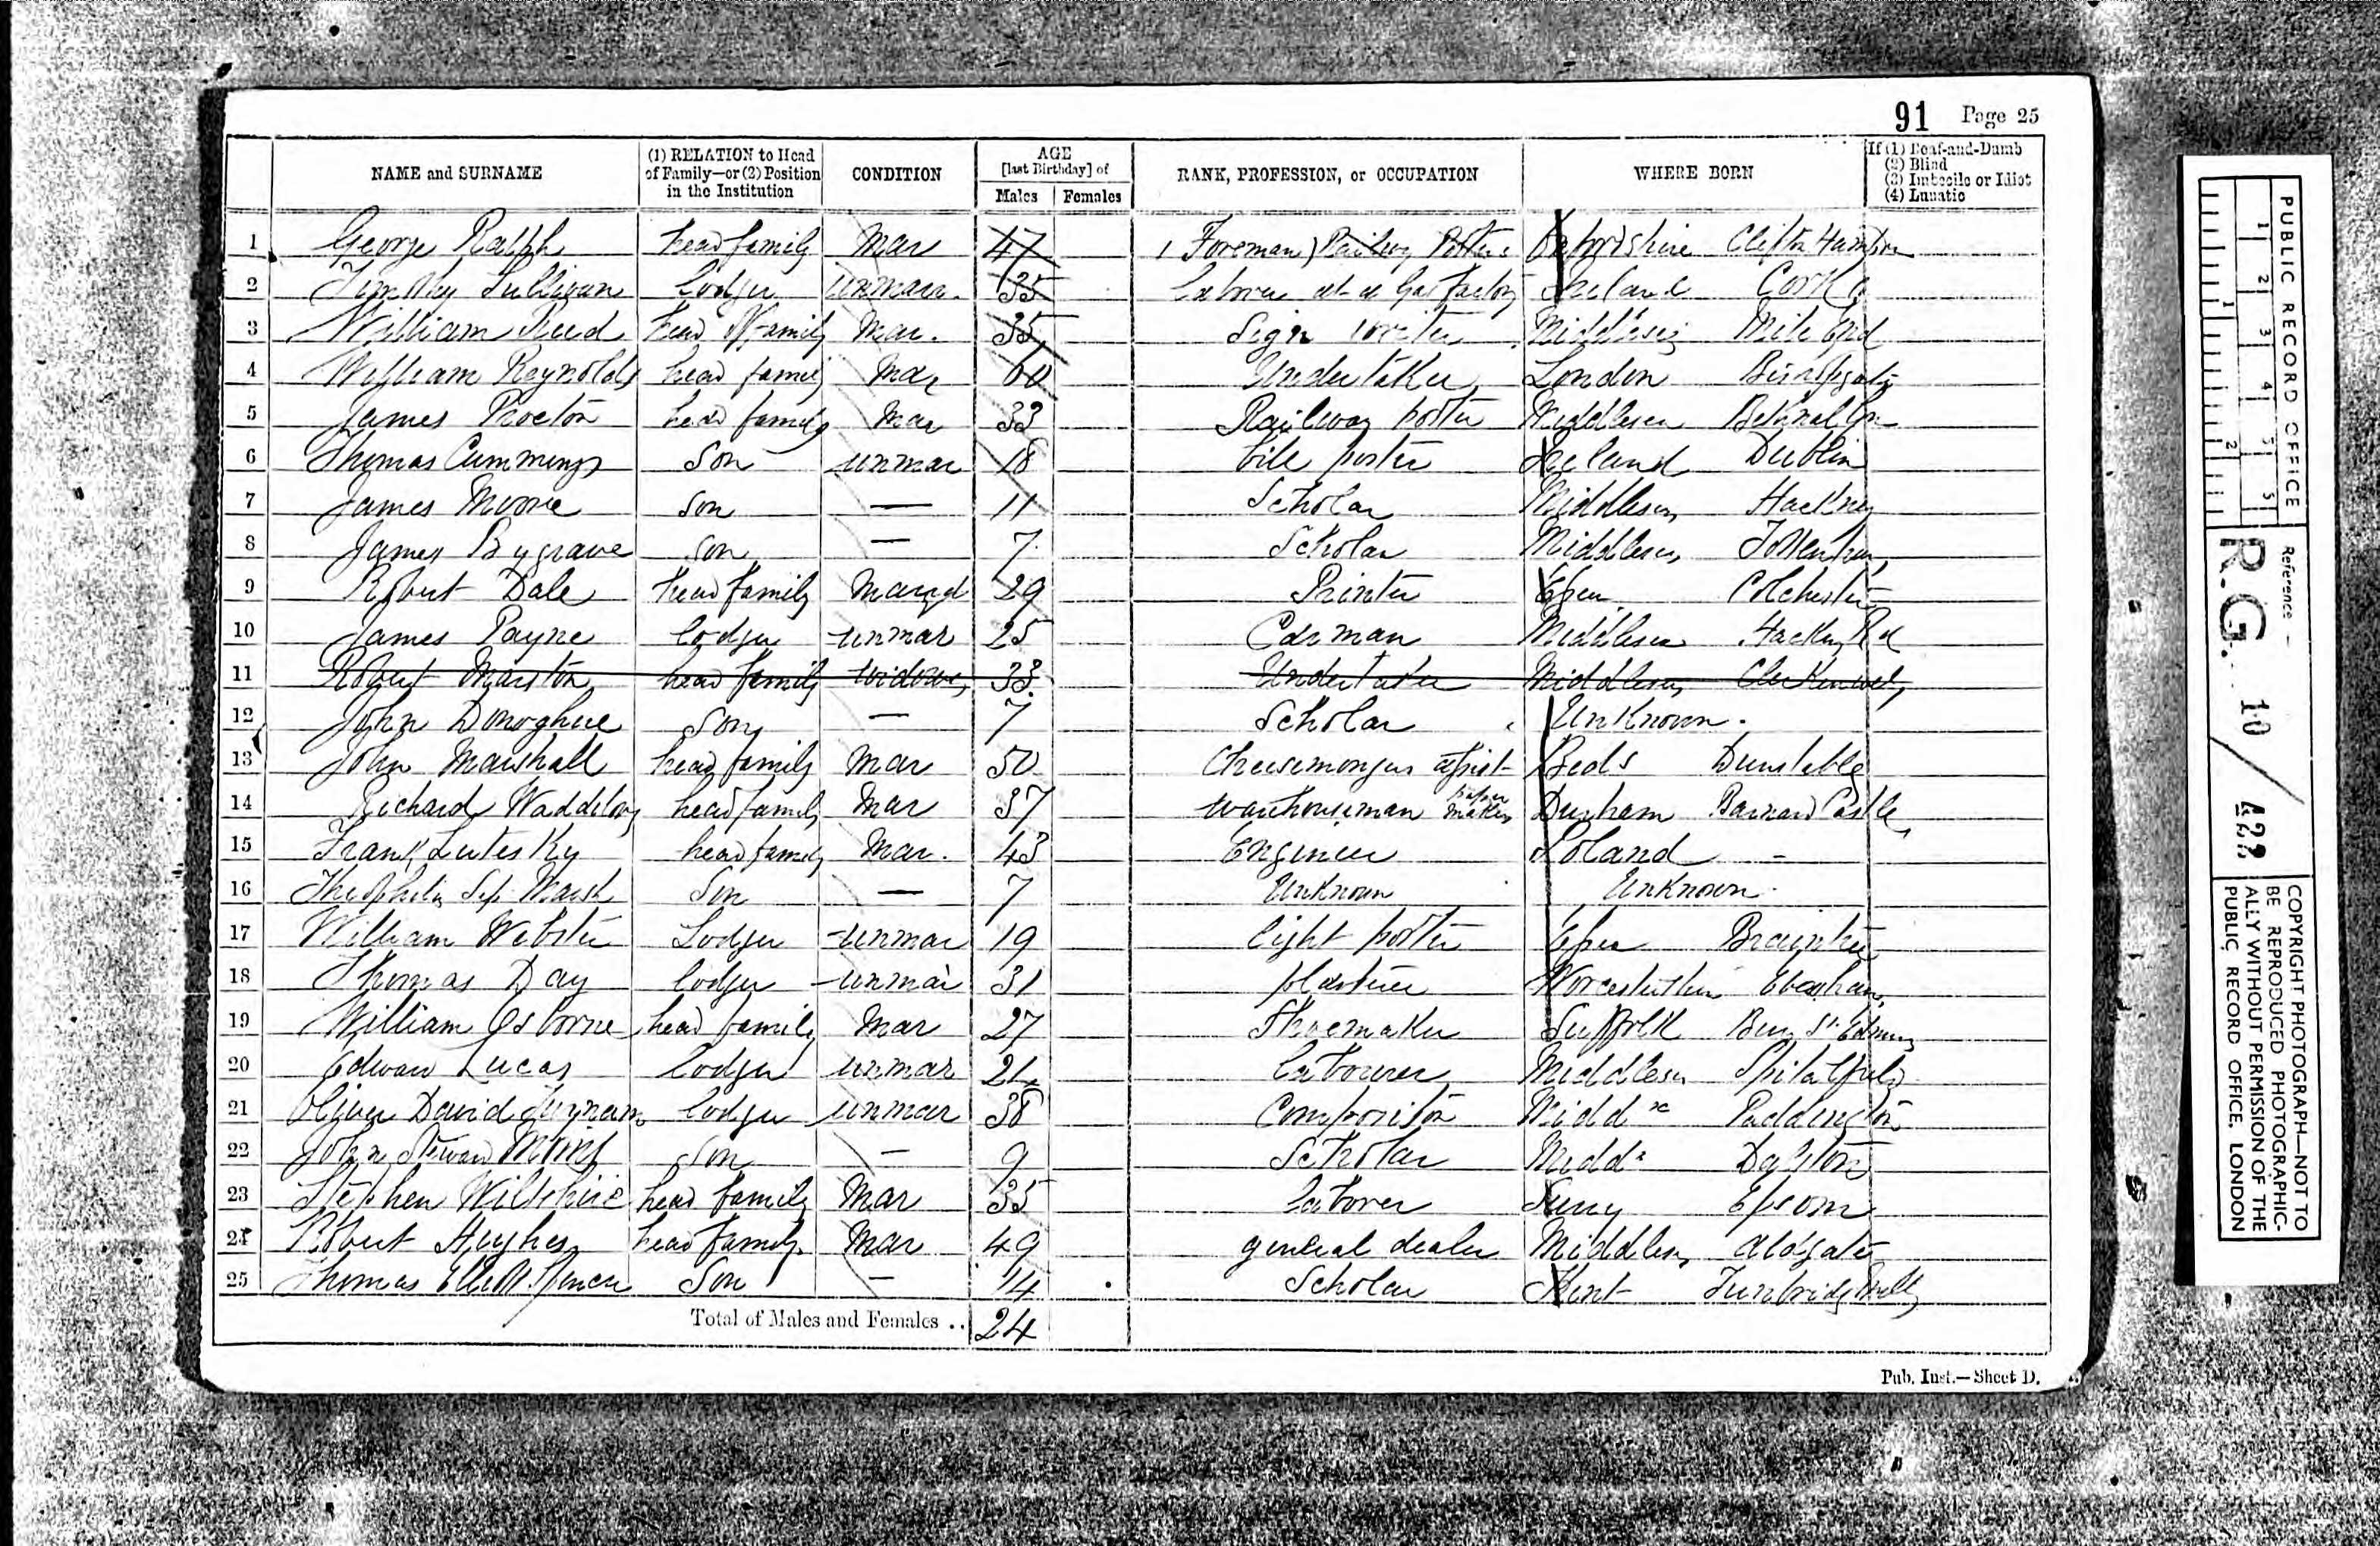 91 Page 25
NAME and SURNAME (1) RELATION to Head of Family—or (2) Position in the Institution CONDITION AGE [last Birthday] of Males Females RANK, PROFESSION, or OCCUPATION WHERE BORN If (1) Deaf-and-Dumb (2) Blind (3) Imbecile or Idiot (4) Lunatic
1 George Ralph head family Mar 47 Foreman) Railway Porters Oxfordshire Clifton Hampton
2 Timothy Sullivan lodger unmarr. 35 laborer at a Gas Factory Ireland Cork
3 William Reed head family Mar. 35 Sign writer Middlesex Mile End
4 William Reynolds head family Mar 60 Undertaker London Bishopsgate
5 James Procton head family Mar 33 Railway porter Middlesex Bethnal Gn
6 Thomas Cummings Son unmar 18 bill poster Ireland Dublin
7 James Moore Son — 11 Scholar Middlesex Hackney
8 James Bygrave Son — 7 Scholar Middlesex Tottenham
9 Robert Dale head family Marryd 29 Printer Essex Colchester
10 James Payne lodger unmar 25 Carman Middlesex Hackney Rd
11 Robert Marston head family widower 33 Undertaker Middlesex Clerkenwell
12 John Donoghue Son — 7 Scholar Unknown.
13 John Marshall head family Mar 50 Cheesemongers assist Beds Dunstable
14 Richard head family Mar 37 Warehouseman paper maker Durham Barnard Castle
15 Frank Lutesky head family Mar. 43 Engineer Poland -
16 Theophilus Sep. Marsh Son — 7 Unknown Unknown.
17 William Webster Lodger unmar 19 light porter Essex Braintree
18 Thomas Day lodger unmar 31 plasterer Worcestershire Evesham
19 William Osborne head family Mar 27 Shoemaker Suffolk Bury St Edmunds
20 Edward Lucas lodger unmar 21 labourer Middlesex Spitalfields
21 Oliver David lodger unmar 38 Compositor Middx Paddington
22 John Steward Son — 9 Scholar Middx Dalston
23 Stephen Wiltshire head family Mar 35 laborer Surrey Epsom
24 Robert Hughes head family Mar 49 general dealer Middlesex Aldgate
25 Thomas Elliott Spencer Son — 14 Scholar Kent Tunbridge Wells
Total of Males and Females .. 24
Pub. Inst.—Sheet D.
PUBLIC RECORD OFFICE
1 2 3 4 5
1 2
Reference —
R.G. 10/422
COPYRIGHT PHOTOGRAPH—NOT TO
BE REPRODUCED PHOTOGRAPHIC-
ALLY WITHOUT PERMISSION OF THE
PUBLIC RECORD OFFICE, LONDON